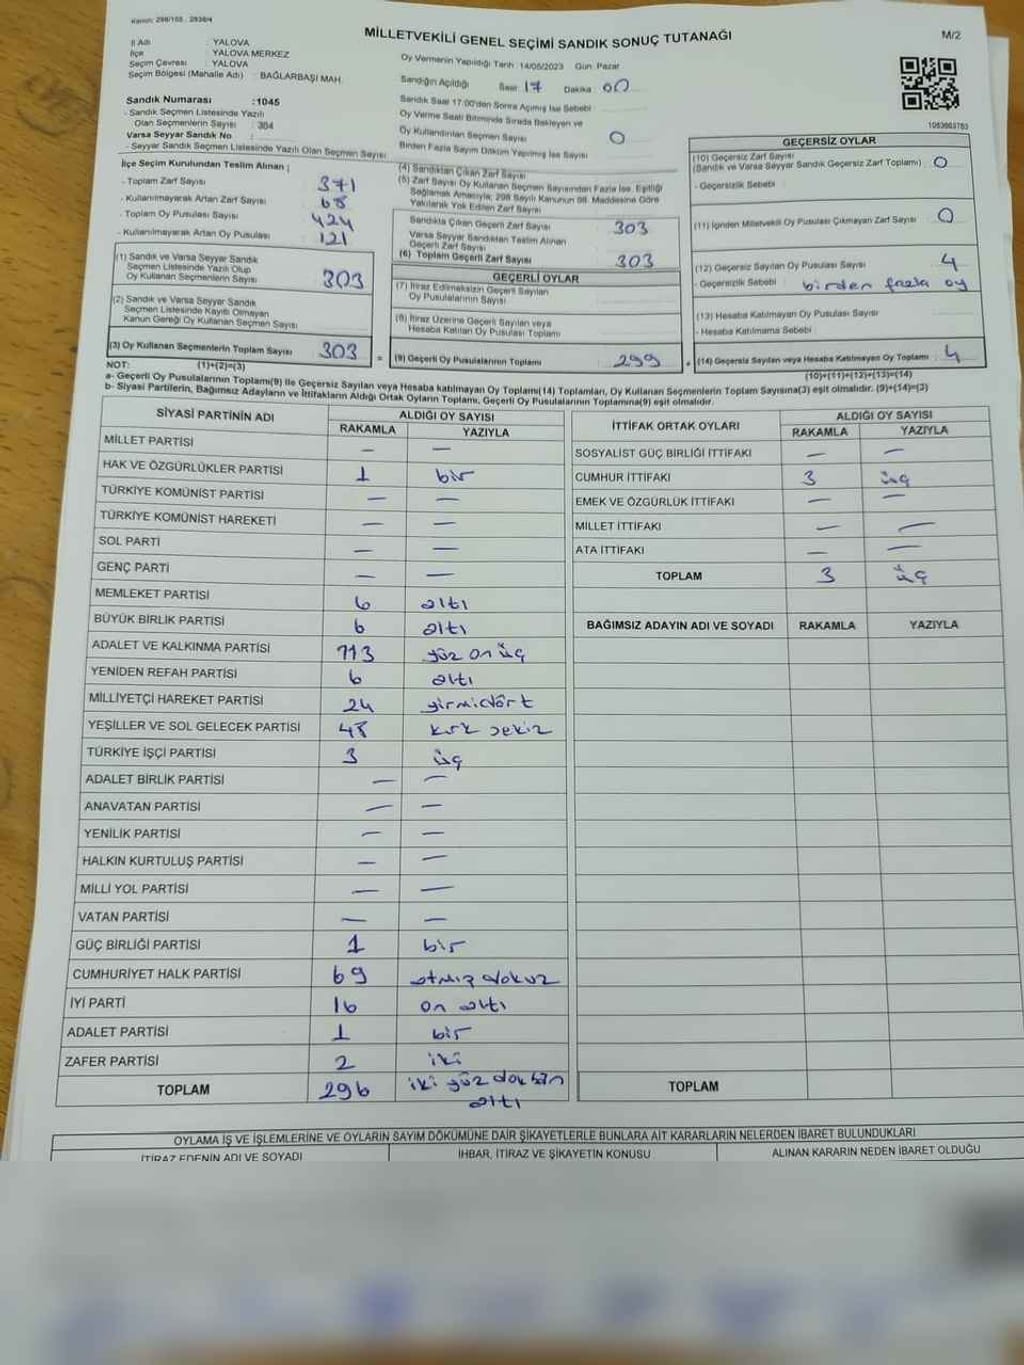 Kanun: 298/105 , 2839/4
MİLLETVEKİLİ GENEL SEÇİMİ SANDIK SONUÇ TUTANAĞI
M/2
İl Adı : YALOVA
İlçe : YALOVA MERKEZ
Seçim Çevresi : YALOVA
Seçim Bölgesi (Mahalle Adı) : BAĞLARBAŞI MAH.
Sandık Numarası :1045
- Sandık Seçmen Listesinde Yazılı
Olan Seçmenlerin Sayısı : 364
Varsa Seyyar Sandık No :
- Seyyar Sandık Seçmen Listesinde Yazılı Olan Seçmen Sayısı
Oy Vermenin Yapıldığı Tarih :14/05/2023 Gün: Pazar
Sandığın Açıldığı Saat: 17 Dakika: 00
Sandık Saat 17:00'den Sonra Açılmış İse Sebebi :
Oy Verme Saati Bitiminde Sırada Bekleyen ve
Oy Kullandırılan Seçmen Sayısı 0
Birden Fazla Sayım Döküm Yapılmış İse Sayısı
1083663783
İlçe Seçim Kurulundan Teslim Alınan ;
- Toplam Zarf Sayısı 371
- Kullanılmayarak Artan Zarf Sayısı 68
- Toplam Oy Pusulası Sayısı 424
- Kullanılmayarak Artan Oy Pusulası 121
(1) Sandık ve Varsa Seyyar Sandık
Seçmen Listesinde Yazılı Olup
Oy Kullanan Seçmenlerin Sayısı 303
(2) Sandık ve Varsa Seyyar Sandık
Seçmen Listesinde Kaydı Olmayan
Kanun Gereği Oy Kullanan Seçmen Sayısı
(3) Oy Kullanan Seçmenlerin Toplam Sayısı 303
(1)+(2)=(3)
(4) Sandıktan Çıkan Zarf Sayısı
(5) Zarf Sayısı Oy Kullanan Seçmen Sayısından Fazla İse, Eşitliği
Sağlamak Amacıyla, 298 Sayılı Kanunun 98. Maddesine Göre
Yakılarak Yok Edilen Zarf Sayısı
Sandıkta Çıkan Geçerli Zarf Sayısı 303
Varsa Seyyar Sandıktan Teslim Alınan
Geçerli Zarf Sayısı
(6) Toplam Geçerli Zarf Sayısı 303
GEÇERLİ OYLAR
(7) İtiraz Edilmeksizin Geçerli Sayılan
Oy Pusulalarının Sayısı
(8) İtiraz Üzerine Geçerli Sayılan veya
Hesaba Katılan Oy Pusulası Toplamı
= (9) Geçerli Oy Pusulalarının Toplamı 299
GEÇERSİZ OYLAR
(10) Geçersiz Zarf Sayısı
(Sandık ve Varsa Seyyar Sandık Geçersiz Zarf Toplamı) 0
- Geçersizlik Sebebi
(11) İçinden Milletvekili Oy Pusulası Çıkmayan Zarf Sayısı 0
(12) Geçersiz Sayılan Oy Pusulası Sayısı 4
- Geçersizlik Sebebi : birden fazla oy
(13) Hesaba Katılmayan Oy Pusulası Sayısı
- Hesaba Katılmama Sebebi
+ (14) Geçersiz Sayılan veya Hesaba Katılmayan Oy Toplamı 4
(10)+(11)+(12)+(13)=(14)
NOT:
a- Geçerli Oy Pusulalarının Toplamı(9) ile Geçersiz Sayılan veya Hesaba katılmayan Oy Toplamı(14) Toplamları, Oy Kullanan Seçmenlerin Toplam Sayısına(3) eşit olmalıdır. (9)+(14)=(3)
b- Siyasi Partilerin, Bağımsız Adayların ve İttifakların Aldığı Ortak Oyların Toplamı, Geçerli Oy Pusulalarının Toplamına(9) eşit olmalıdır.
SİYASİ PARTİNİN ADI ALDIĞI OY SAYISI
RAKAMLA YAZIYLA
MİLLET PARTİSİ — —
HAK VE ÖZGÜRLÜKLER PARTİSİ 1 bir
TÜRKİYE KOMÜNİST PARTİSİ — —
TÜRKİYE KOMÜNİST HAREKETİ — —
SOL PARTİ — —
GENÇ PARTİ — —
MEMLEKET PARTİSİ 6 altı
BÜYÜK BİRLİK PARTİSİ 6 altı
ADALET VE KALKINMA PARTİSİ 113 yüz on üç
YENİDEN REFAH PARTİSİ 6 altı
MİLLİYETÇİ HAREKET PARTİSİ 24 yirmidört
YEŞİLLER VE SOL GELECEK PARTİSİ 48 kırk sekiz
TÜRKİYE İŞÇİ PARTİSİ 3 üç
ADALET BİRLİK PARTİSİ — —
ANAVATAN PARTİSİ — —
YENİLİK PARTİSİ — —
HALKIN KURTULUŞ PARTİSİ — —
MİLLİ YOL PARTİSİ — —
VATAN PARTİSİ — —
GÜÇ BİRLİĞİ PARTİSİ 1 bir
CUMHURİYET HALK PARTİSİ 69 atmış dokuz
İYİ PARTİ 16 on altı
ADALET PARTİSİ 1 bir
ZAFER PARTİSİ 2 iki
TOPLAM 296 iki yüz doksan
altı
İTTİFAK ORTAK OYLARI ALDIĞI OY SAYISI
RAKAMLA YAZIYLA
SOSYALİST GÜÇ BİRLİĞİ İTTİFAKI — —
CUMHUR İTTİFAKI 3 üç
EMEK VE ÖZGÜRLÜK İTTİFAKI — —
MİLLET İTTİFAKI — —
ATA İTTİFAKI — —
TOPLAM 3 üç
BAĞIMSIZ ADAYIN ADI VE SOYADI RAKAMLA YAZIYLA
TOPLAM
OYLAMA İŞ VE İŞLEMLERİNE VE OYLARIN SAYIM DÖKÜMÜNE DAİR ŞİKAYETLERLE BUNLARA AİT KARARLARIN NELERDEN İBARET BULUNDUKLARI
İTİRAZ EDENİN ADI VE SOYADI İHBAR, İTİRAZ VE ŞİKAYETİN KONUSU ALINAN KARARIN NEDEN İBARET OLDUĞU